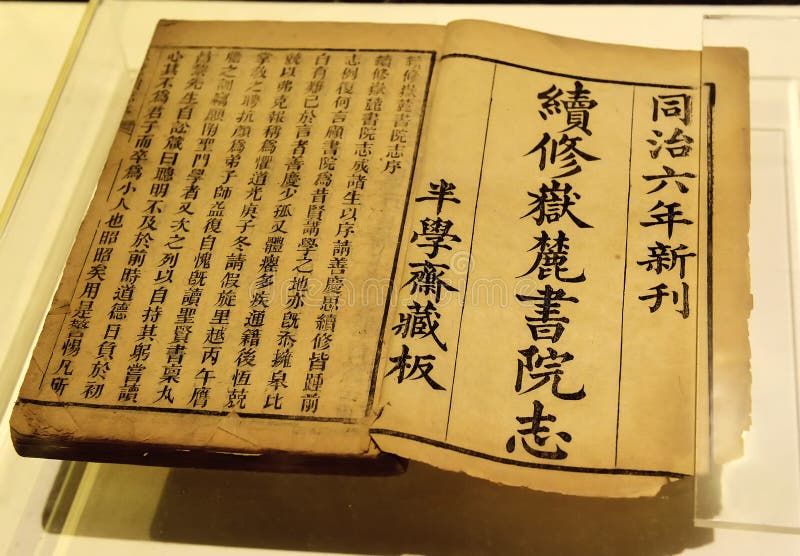 同治六年新刊
續修嶽麓書院志
半學齋藏板
續修嶽麓書院志序
續修嶽麓書院志成諸生以序請善慶思續修皆踵前
志例復何言顧書院爲昔賢講學之地亦旣忝擁皋比
自有難已於言者善慶少孤又體癯多疾通籍後恆兢
兢以弗克報稱爲懼道光庚子冬請假旋里越丙午膺
掌敎之聘抗顏爲弟子師益復自愧旣讀聖賢書稟丸
熊之訓竊願附聖門學者又次之列以自持其躬嘗讀
呂
先生自訟箴曰聰明不及於前時道德日負於初
心其不爲君子而卒爲小人也昭昭矣用是警惕凡所
dreamstime